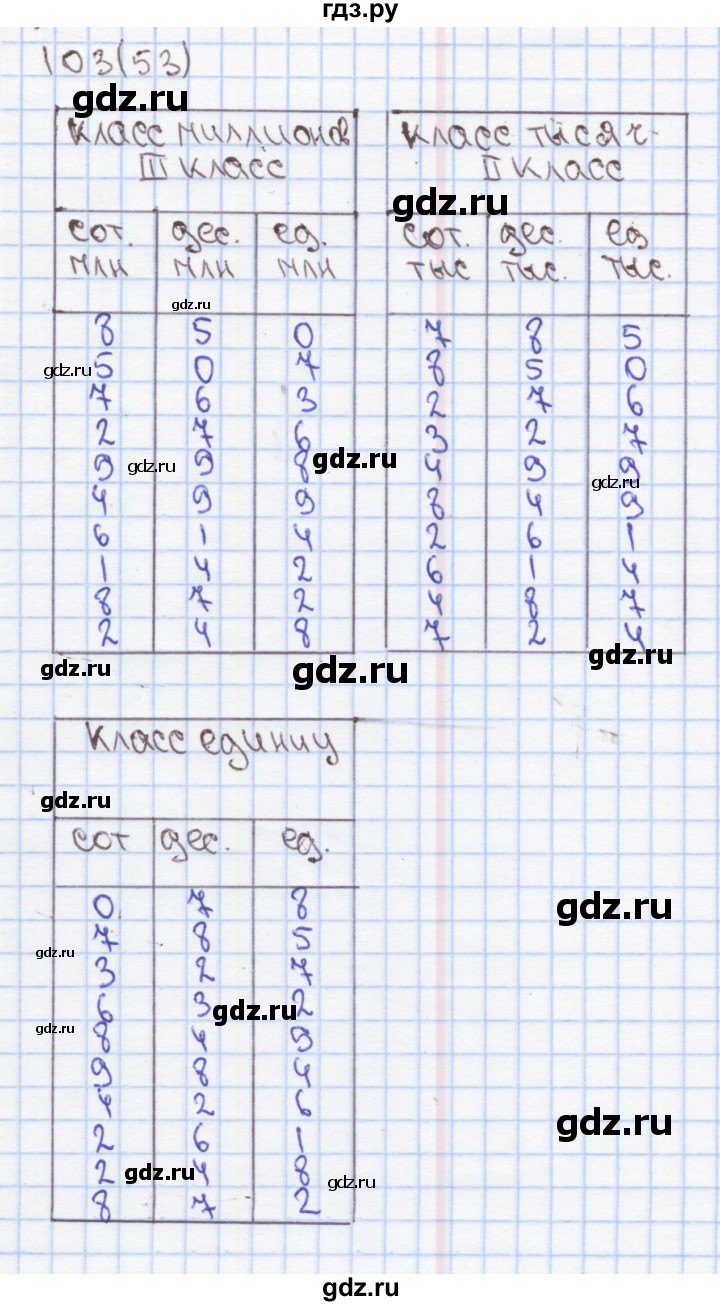 гдз.ру
103(53)
gdz.ru
класс миллионов
III класс
класс тысяч
II класс
gdz.ru
сот. млн
дес. млн
ед. млн
сот. тыс
дес. тыс.
ед тыс.
gdz.ru
8 5 0 7 8 5
gdz.ru
5 0 7 8 5 0
7 6 3 2 7 6
2 7 6 3 2 7
gdz.ru
9 9 8 4 9 9
gdz.ru
gdz.ru
4 9 9 8 4 9
6 1 4 2 6 1
1 4 2 6 1 4
8 7 2 4 8 7
2 4 8 7 2 4
gdz.ru
gdz.ru
gdz.ru
Класс единиц
gdz.ru
сот дес. ед.
0 7 8
gdz.ru
7 8 5
gdz.ru
3 2 7
6 3 2
gdz.ru
8 4 9
gdz.ru
9 8 4
4 2 6
gdz.ru
2 6 1
2 4 8
gdz.ru
gdz.ru
8 7 2
gdz.ru